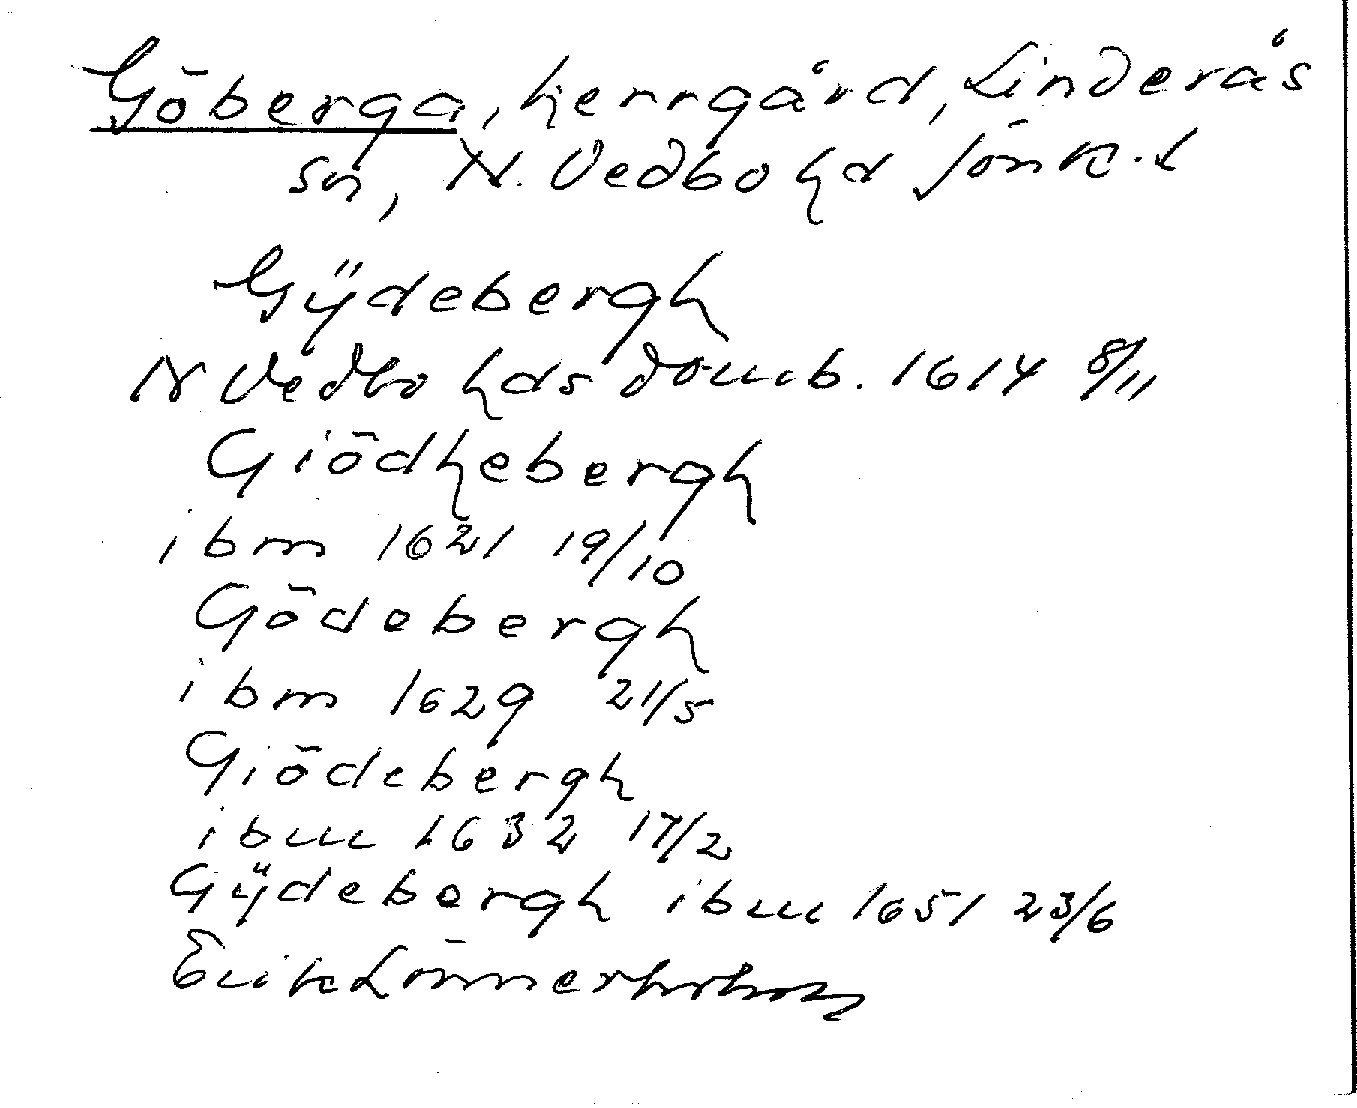 Göberga, herrgård, Linderås
sn, N. Vedbo hd Jönk. l
Gÿdebergh
N Vedbo hds domb. 1614 8/11
Giödhebergh
ibm 1621 19/10
Gödebergh
ibm 1629 21/5
Giödebergh
ibm 1632 17/2
Gÿdebergh ibm 1651 23/6
Erik Lönnerholm